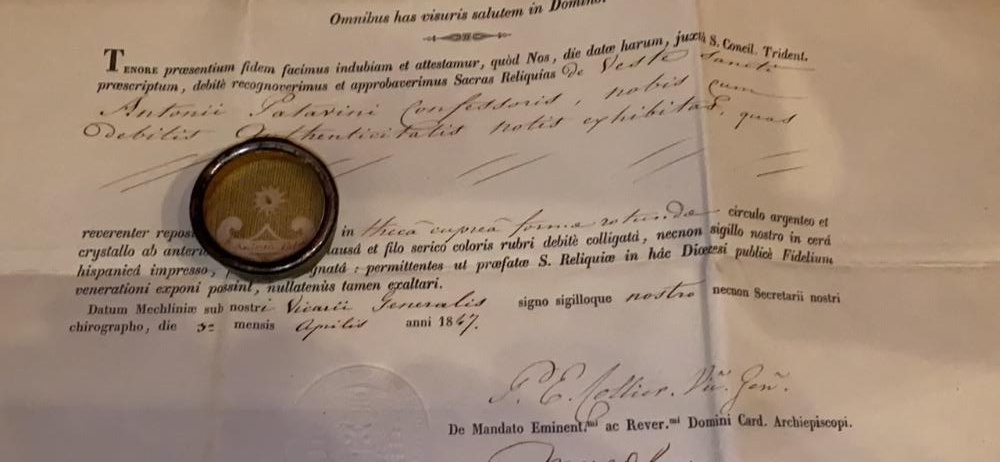 Omnibus has visuris salutem in Domino.
TENORE præsentium fidem facimus indubiam et attestamur, quòd Nos, die datæ harum, juxtà S. Concil. Trident.
præscriptum, debitè recognoverimus et approbaverimus Sacras Reliquias de Veste Sancti
Antonii Patavini Confessoris, nobis cum
debitis Authenticitatis notis exhibitas, quas
reverenter repos in thecâ cupreâ formæ rotundæ circulo argenteo et
crystallo ab anteri ausâ et filo serico coloris rubri debitè colligatâ, necnon sigillo nostro in cerâ
hispanicâ impresso, gnatâ : permittentes ut præfatæ S. Reliquiæ in hác Diœcesi publicè Fidelium
venerationi exponi possint, nullatenùs tamen exaltari.
Datum Mechliniæ sub nostri Vicarii Generalis signo sigilloque nostro necnon Secretarii nostri
chirographo, die mensis Aprilis anni 1847.
P. E. Collier. Vic. Gen.
De Mandato Eminent.mi ac Rever.mi Domini Card. Archiepiscopi.